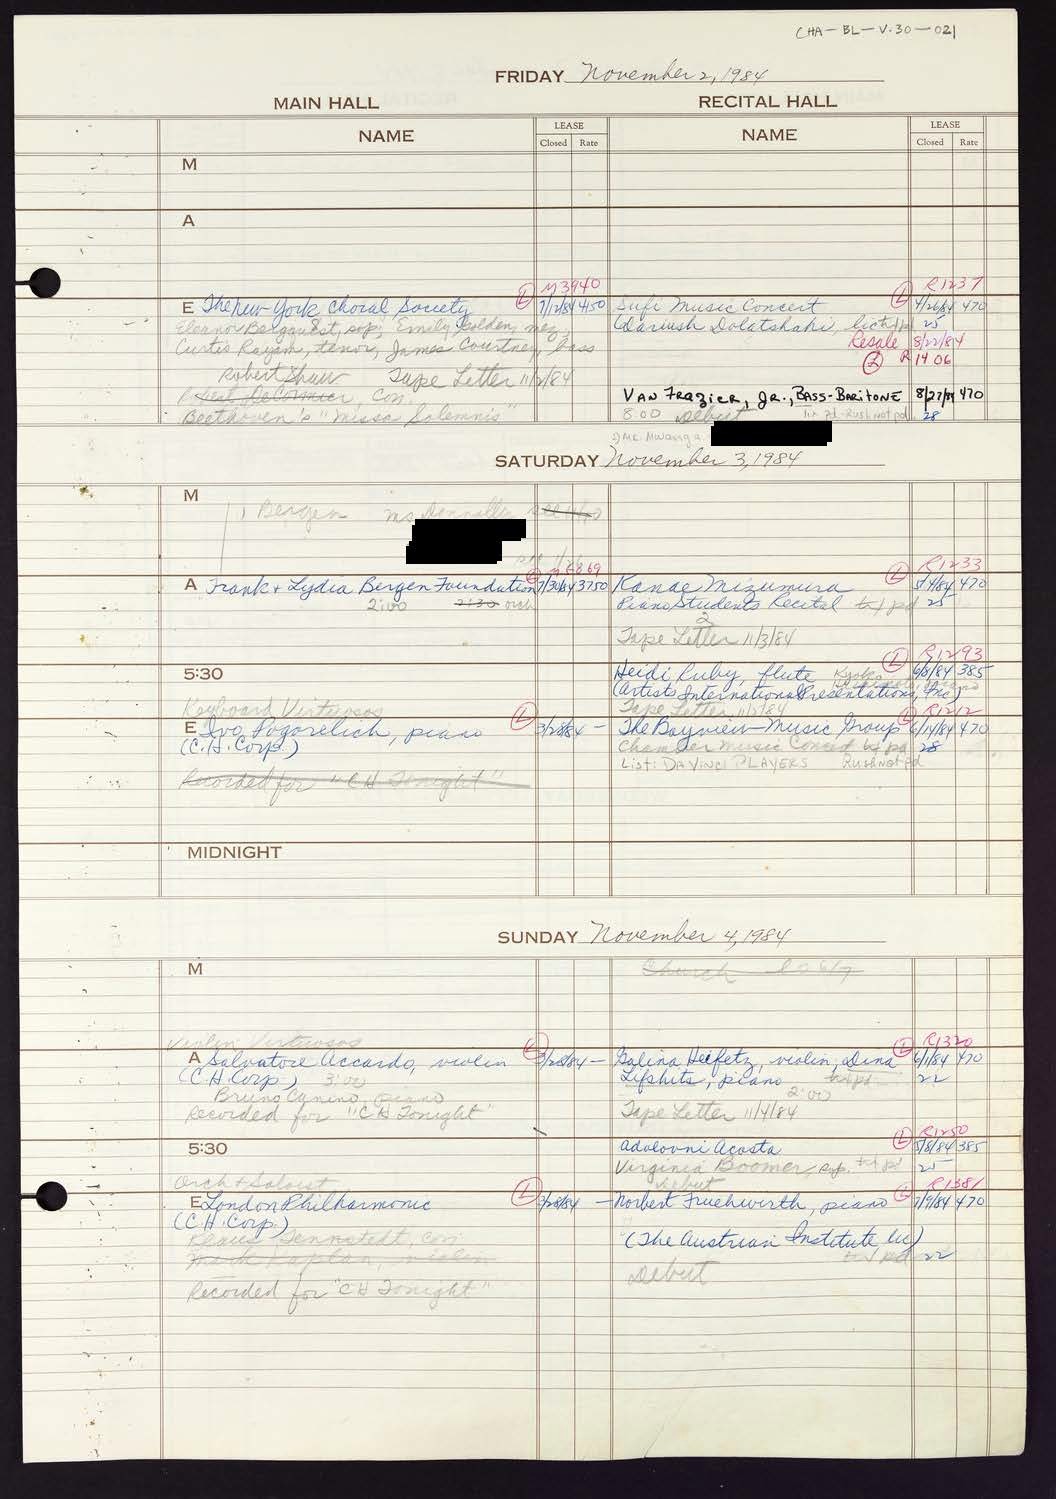 CHA-BL-V.30-021
FRIDAY November 2, 1984
MAIN HALL RECITAL HALL
NAME LEASE Closed Rate NAME LEASE Closed Rate
M
A
M3940 R1237
E The New York Choral Society L 7/12/84 4150 Sufi Music Concert L 4/26/84 470
Eleanor Bergquist, sop; Emily Golden, mez, Dariush Dolatshahi, 25
Curtis Rayam, tenor, James Courtney, bass Resale 8/22/84
Robert Shaw Tape Letter 11/2/84 L R1406
DeCormier, Con. Van Frazier, Jr., Bass-Baritone 8/27/84 470
Beethoven's "Missa Solemnis" 8:00 Debut tix pd-Rush not pd 28
1) Mr. Mwanga
SATURDAY November 3, 1984
M
1) Bergen Ms. Donnalley
R1233
A Frank + Lydia Bergen Foundation L 7/30/84 3750 Kanae Mizumura L 5/4/84 470
2:00 2:30 orch Piano Students Recital txt pd 25
2
Tape Letter 11/3/84
R1293
5:30 Heidi Ruby, flute Kyoko L 6/8/84 385
(Artists International Presentations, Inc.)
Keyboard Virtuosos Tape Letter 11/3/84 R1212
E Ivo Pogorelich, piano L 3/28/84 - The Bayview Music Group L 6/14/84 470
(C.H. Corp.) Chamber Music Concert txt pd 28
List: DAVINCI PLAYERS Rush not pd
Recorded for "CH Tonight"
MIDNIGHT
SUNDAY November 4, 1984
M Church
Violin Virtuosos R1320
A Salvatore Accardo, violin L 3/28/84 - Galina Heifetz, violin, Dina L 6/1/84 470
(C.H. Corp.) 3:00 Lifshits, piano txt pd 22
Bruno Canino, piano 2:00
Recorded for "CH Tonight" Tape Letter 11/4/84
R1250
5:30 Adolovni Acosta L 5/8/84 385
Virginia Boomer, sop. txt pd 25
Orch + Soloist Debut R1381
E London Philharmonic L 3/28/84 - Norbert Fruehwirth, piano L 7/9/84 470
(C.H. Corp.)
Klaus Tennstedt, con (The Austrian Institute Inc)
Mark Kaplan, violin txt pd 22
Recorded for "CH Tonight" Debut